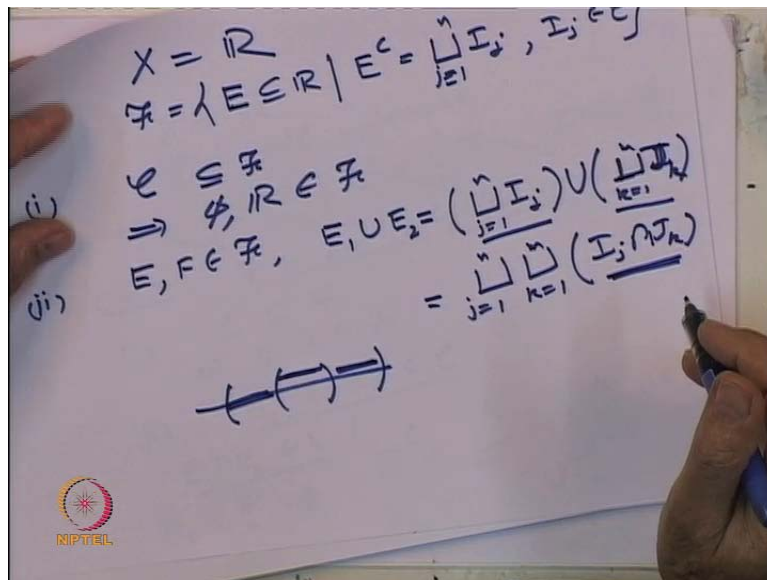 X = ℝ
ℱ = { E ⊆ ℝ | E^c = ⊔_{j=1}^n I_j , I_j ∈ C }
(i) C ⊆ ℱ
⇒ ϕ, ℝ ∈ ℱ
(ii) E, F ∈ ℱ, E_1 ∪ E_2 = ( ⊔_{j=1}^n I_j ) ∪ ( ⊔_{k=1}^n J_k )
= ⊔_{j=1}^n ⊔_{k=1}^n ( I_j ∩ J_k )
NPTEL